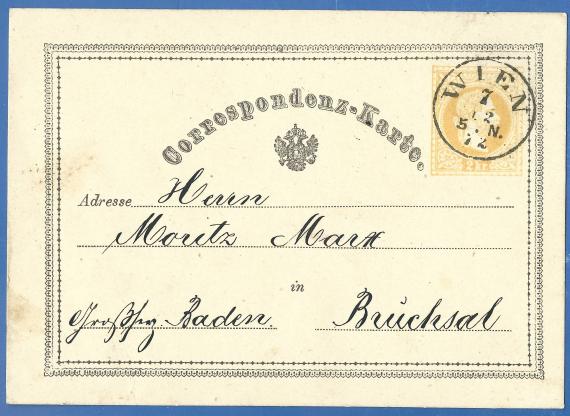 Correspondenz-Karte.
WIEN
7
12
5. N.
72
2 Kr
Adresse Herrn
Moritz Marx
in
Großhzg Baden. Bruchsal